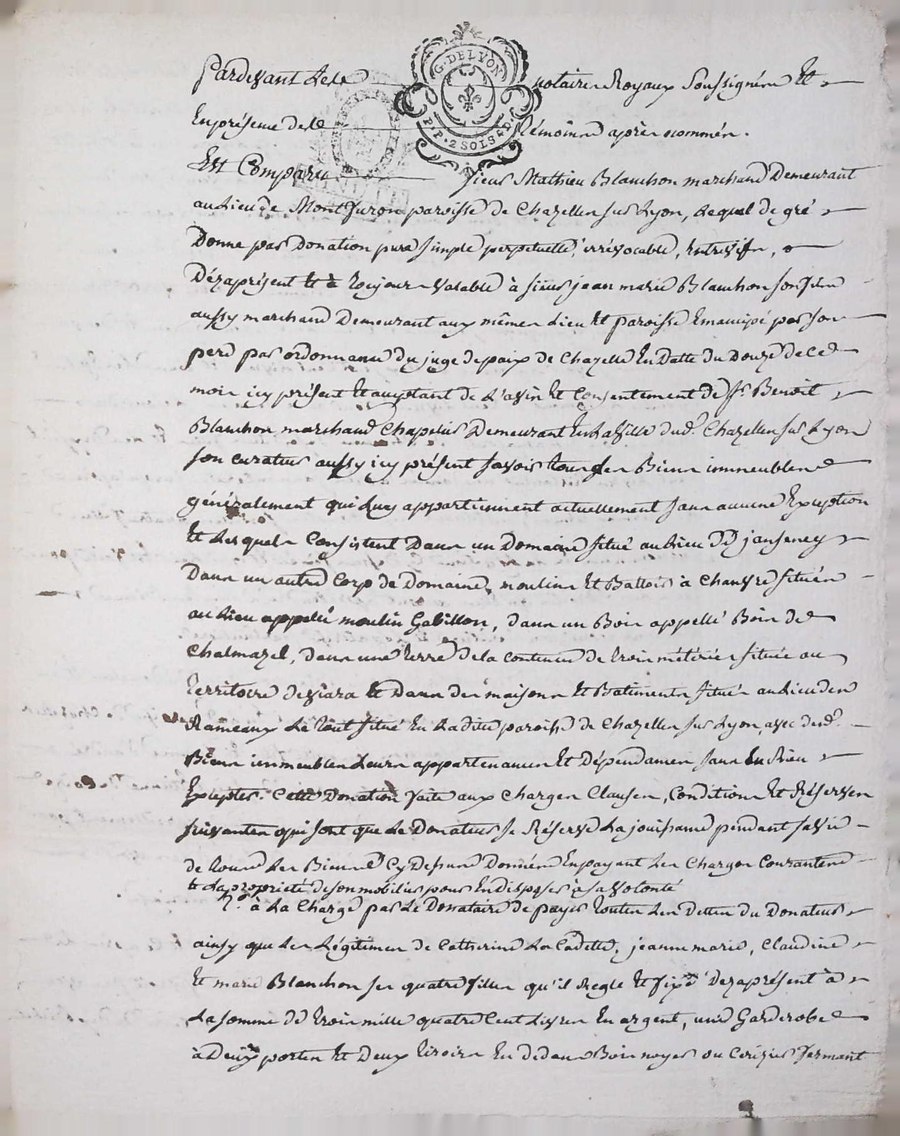 Pardevant Les notaires Royaux Soussignés Et
En présence des Témoins après nommés.
G. DE LYON
P. P. 2 SOLS 4 D.
Est Comparu sieur Mathieu Blanchon marchand Demeurant
au Lieu de Montfuron paroisse de Chazelles sur Lyon, Lequel de gré
Donne par Donation pure simple perpetuelle, irrévocable, Entrevifs,
Dèzaprésent et à Toujours valable à sieur jean marie Blanchon son fils
aussy marchand Demeurant aux mêmes Lieu Et paroisse Emancipé par son
pere par ordonnance du juge de paix de Chazelle En Datte du Douze de Ce
mois icy présent Et acceptant de L'avis Et Consentement de Sr. Benoit
Blanchon marchand Chapelier Demeurant En La ville dud. Chazelles sur Lyon
son curateur aussy icy présent savoir tous ses Biens immeubles
généralement qui Luy appartiennent actuellement sans aucune Exception
Et Lesquels Consistent Dans un Domaine situé au Lieu De janseney
Dans un autre Corp de Domaine, moulins Et Battoir à Chanvre situés
au Lieu appellé moulin Gabillon, dans un Bois appellé Bois de
Chalmazel, dans une Terre de la contenue de Trois métérées située au
Territoire de viara Et Dans des maisons Et Batiments situés au Lieu des
Rameaux Le Tout situé En La dite paroisse de Chazelles sur Lyon, avec desd.
Biens immeubles Leurs appartenances Et Dépendances sans En Rien
Excepter. Cette Donation faite aux Charges Clauses, Conditions Et Réserves
suivantes qui sont que Le Donateur se Réserve La jouissance pendant sa vie
de tous Les Biens Cy Dessus Donnés En payant Les Charges Courantes
Et La propriété de son mobilier pour En disposer à sa volonté
à La Charge par Le Donataire de payer Toutes Les Dettes du Donateur
ainsy que Les Légitimes de Catherine La Cadette, jeanne marie, Claudine
Et marie Blanchon ses quatre filles qu'il Regle Et fixe dezaprésent à
La somme de Trois mille quatre Cent Livres En argent, une Garderobe
à Deux portes Et Deux Tiroirs En dedans Bois noyer ou Cerizier fermant